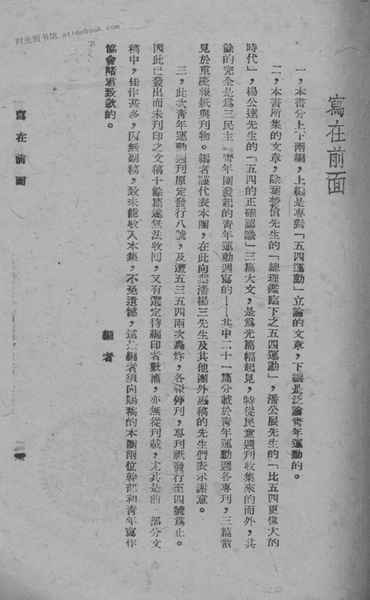 寫在前面
一，本書分上下兩編，上編是專對「五四運動」立論的文章，下編是泛論青年運動的。
二，本書所集的文章，除葉楚傖先生的「總理鑑臨下之五四運動」，潘公展先生的「比五四更偉大的
時代」，楊公達先生的「五四的正確認識」三篇大文，是為光篇幅起見，特從民意週刊收集來的而外，其
餘的完全是為三民主義青年團發起的青年運動週寫的——其中二十一篇分載於青年運動週各專刊，三篇散
見於重慶報紙與刊物。編者謹代表本團，在此向葉潘楊三先生及其他團外惠稿的先生們表示謝意。
三，此次青年運動週刊原定發行八號，及遭五三五四兩次轟炸，各報停刊，專刊祇發行至四號為止。
因此已發出而未刊印之文稿十餘篇遂無法收回，又有選定待編印者數篇，亦無從刊載，尤其是前一部分文
稿中，佳作甚多，因無副稿，致未能收入本集，不免遺憾，這是編者須向賜稿的本團兩位幹部和青年寫作
協會諸君致歉的。
編者
寫在前面